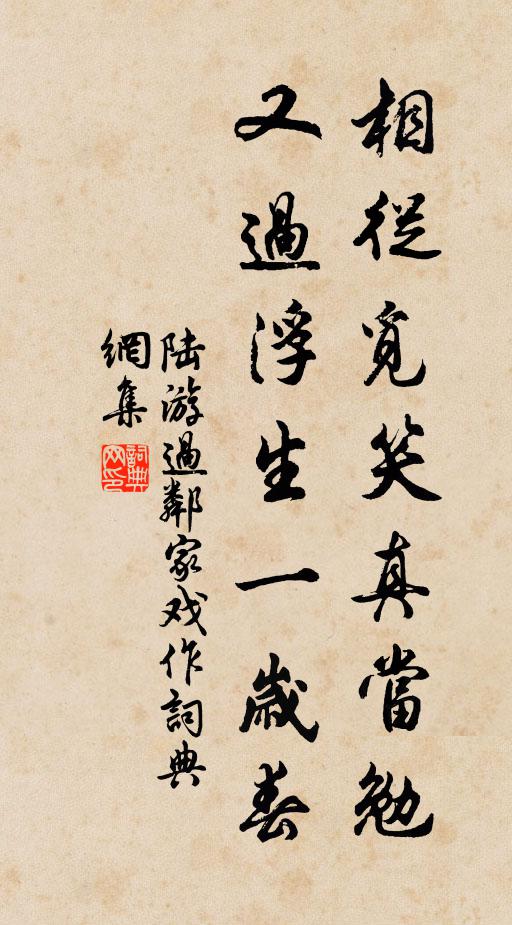 相從覓笑真當勉
又過浮生一歲春
陸游過鄰家戏作詞典
網集
詞典網印